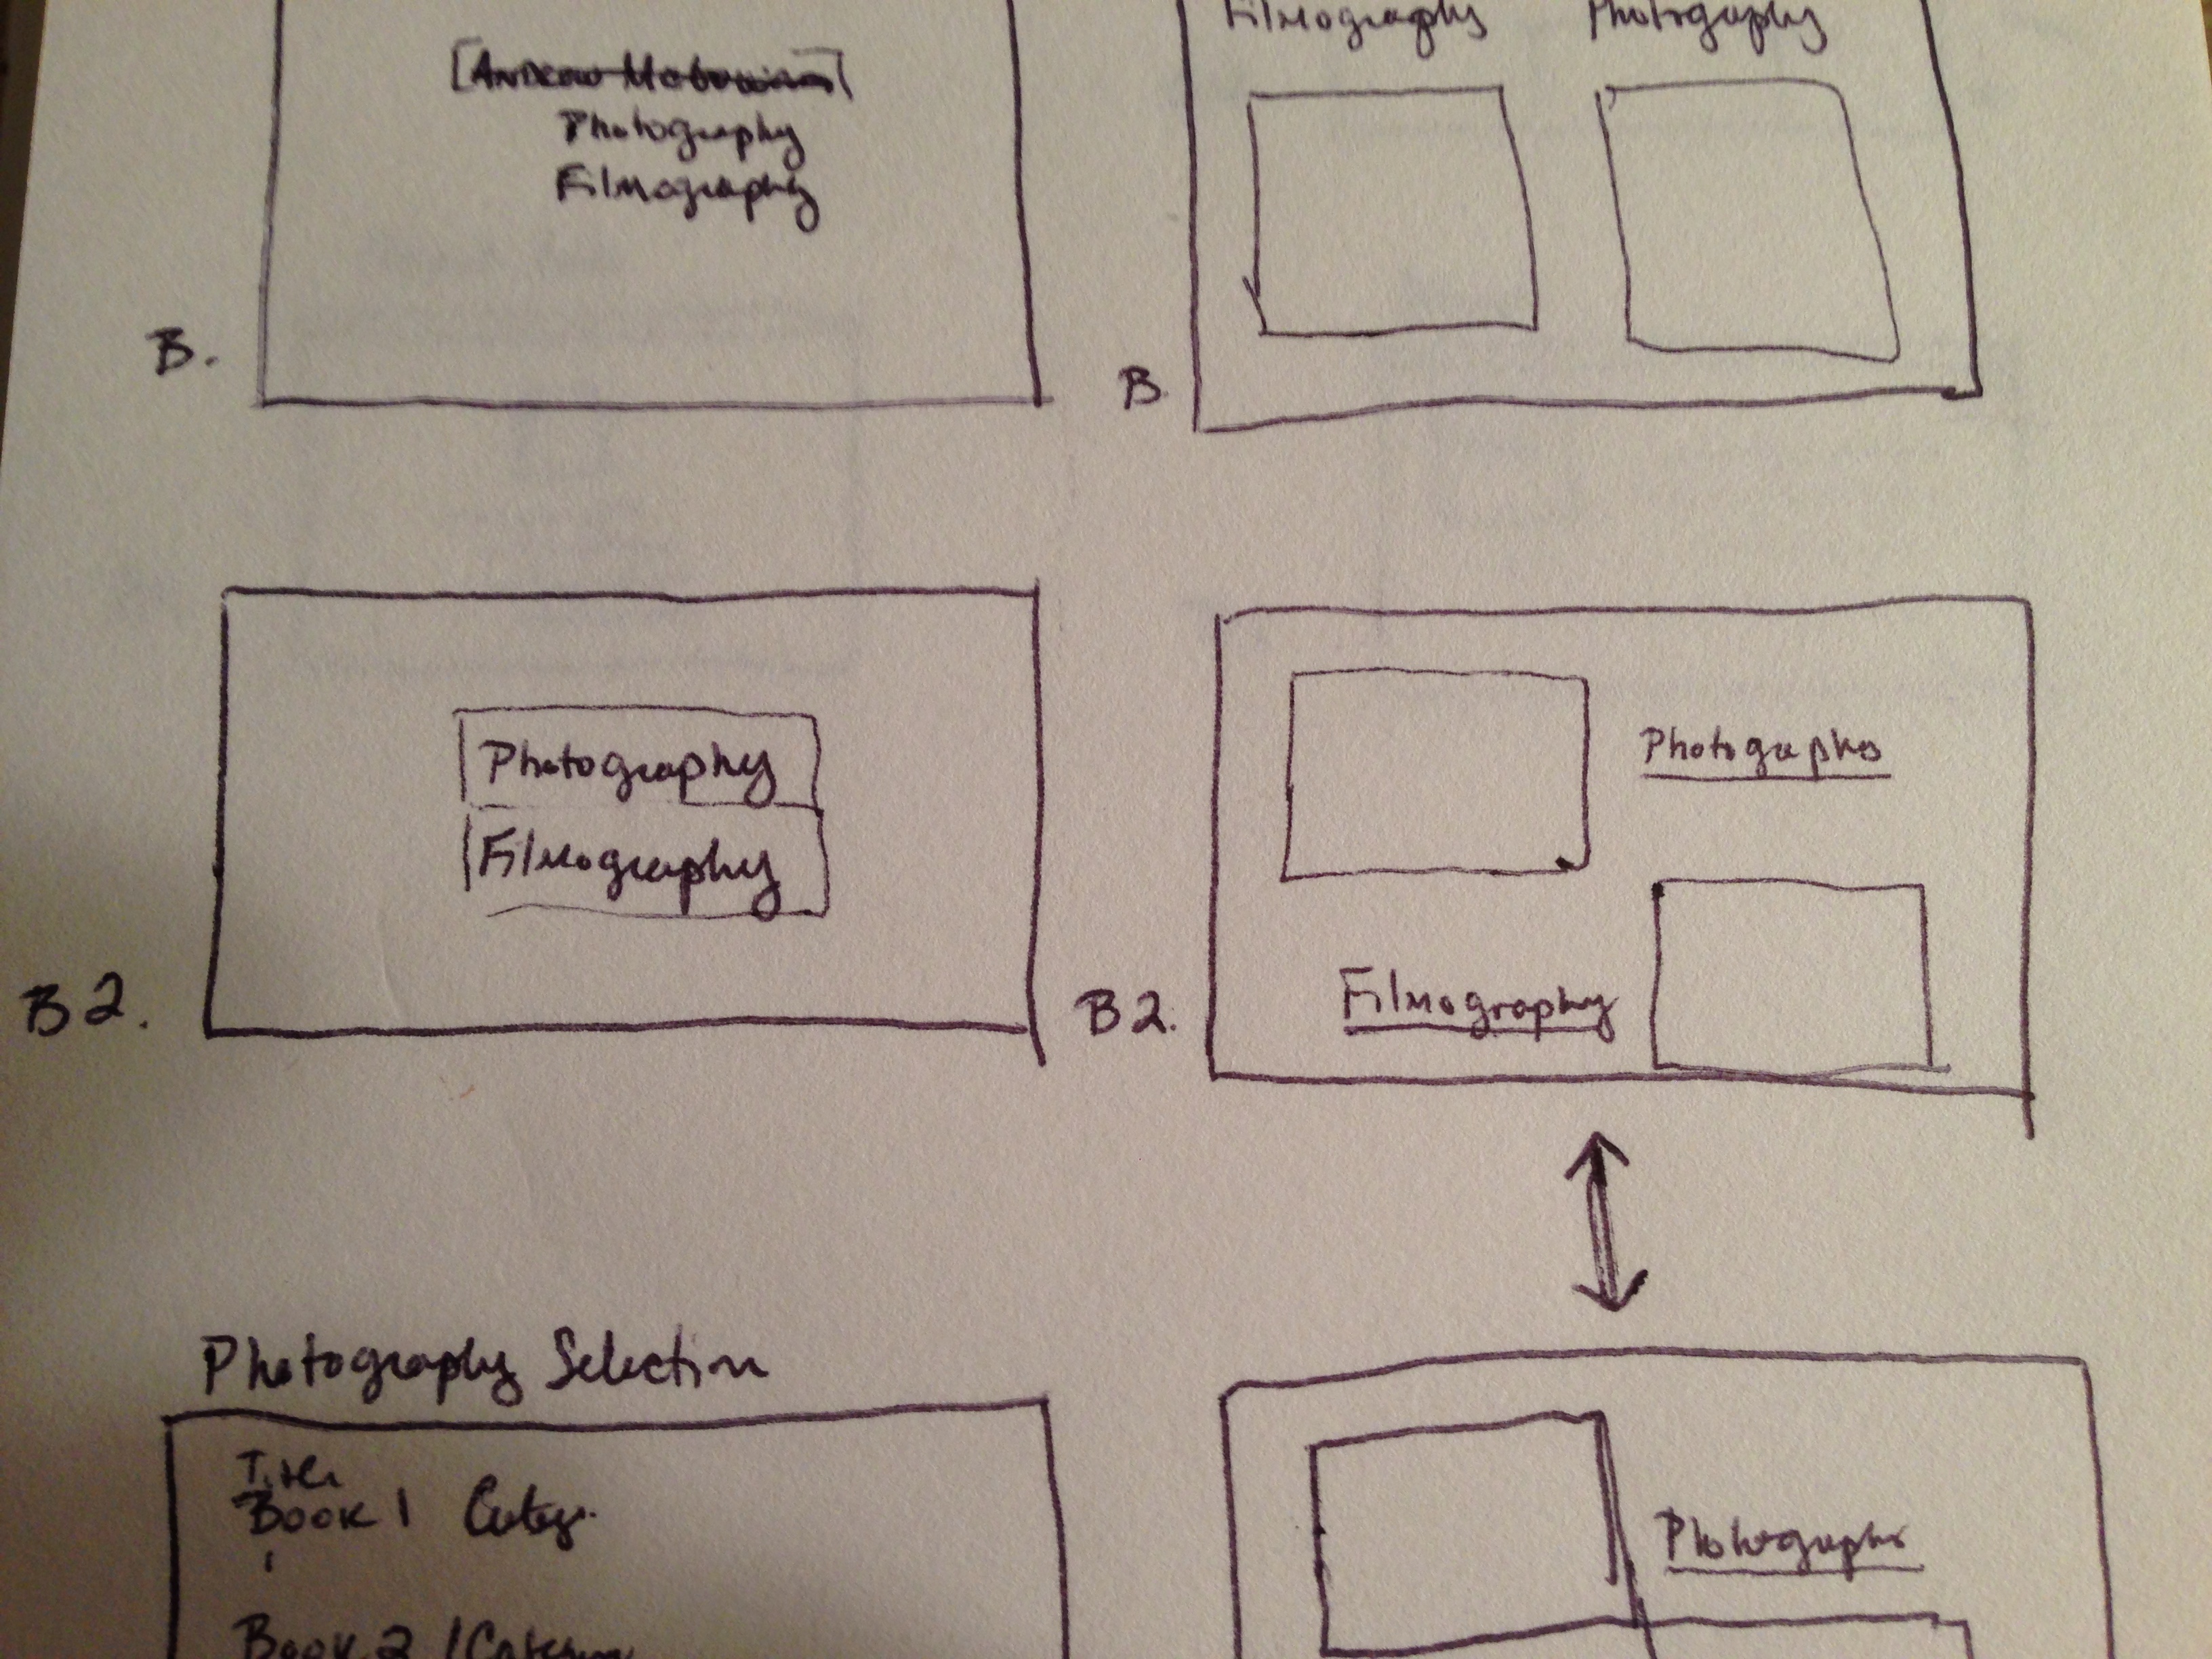 Photography
Filmography
B.
Filmography Photography
B
Photography
Filmography
B2.
Photography
Filmography
B2.
Photography Selection
Title
Book 1 Categ.
Book 2 /
Photography